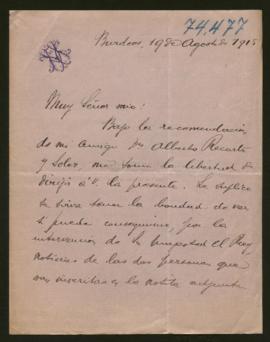 74,477
Burdeos, 19 de Agosto de 1915
Muy Señor mio:
Bajo la recomendación
de mi amigo Dn Alberto Ricarte
y Soler, me tomo la libertad de
dirigir á V. la presente. Le suplico
se sirva tener la bondad de ver
si puede conseguirme, por la
intervención de Su Magestad el Rey,
noticias de las dos personas que
van inscritas en la notita adjunta